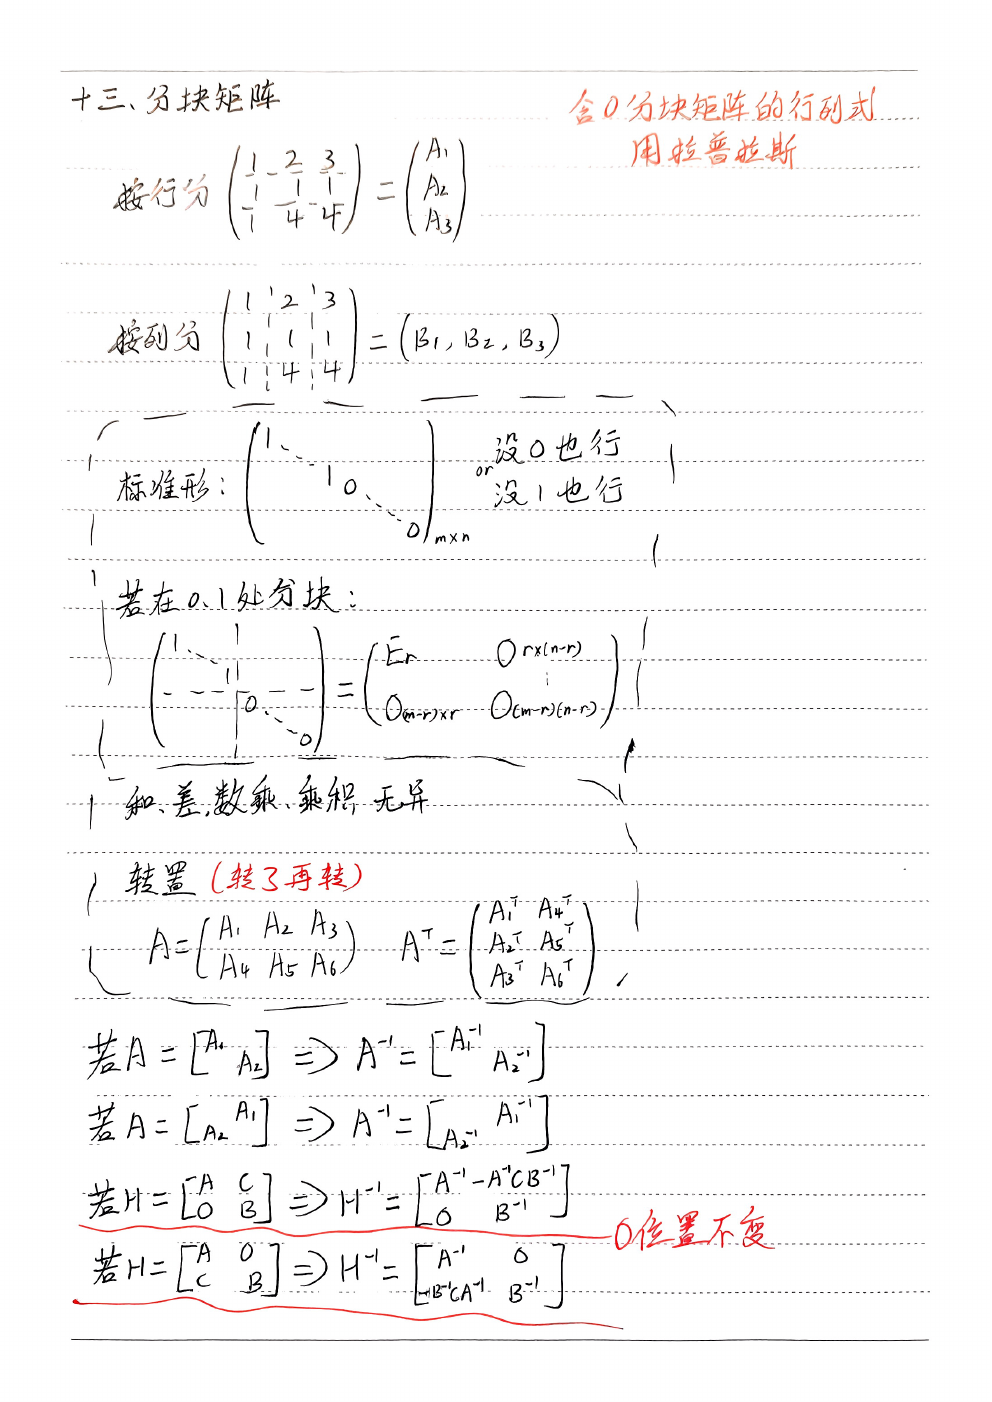 十三、分块矩阵
含0分块矩阵的行列式
用拉普拉斯
按行分 (1 2 3
1 1 1
1 4 4) = (A₁
A₂
A₃)
按列分 (1 2 3
1 1 1
1 4 4) = (B₁, B₂, B₃)
标准形: (1
1
0
0)m×n or 没0也行
没1也行
若在0、1处分块:
(1
1
0
0) = (Er O r×(n-r)
O(m-r)×r O(m-r)(n-r))
和、差、数乘、乘积 无异
转置 (转了再转)
A = (A₁ A₂ A₃
A₄ A₅ A₆) Aᵀ = (A₁ᵀ A₄ᵀ
A₂ᵀ A₅ᵀ
A₃ᵀ A₆ᵀ)
若A = [A₁
A₂] => A⁻¹ = [A₁⁻¹
A₂⁻¹]
若A = [A₁
A₂] => A⁻¹ = [A₁⁻¹
A₂⁻¹]
若H = [A C
O B] => H⁻¹ = [A⁻¹ -A⁻¹CB⁻¹
O B⁻¹]
O位置不变
若H = [A O
C B] => H⁻¹ = [A⁻¹ O
-B⁻¹CA⁻¹ B⁻¹]